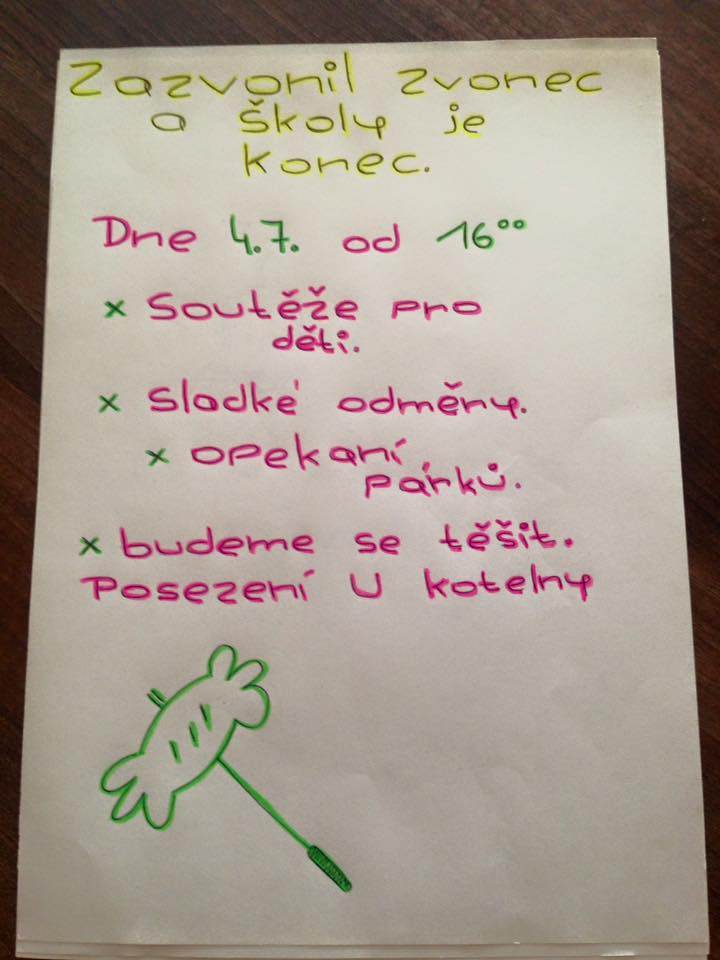 Zazvonil zvonec
a školy je
konec.
Dne 4.7. od 16⁰⁰
x Soutěže pro
děti.
x Sladké odměny.
x opekaní
párků.
x budeme se těšit.
Posezení U kotelny